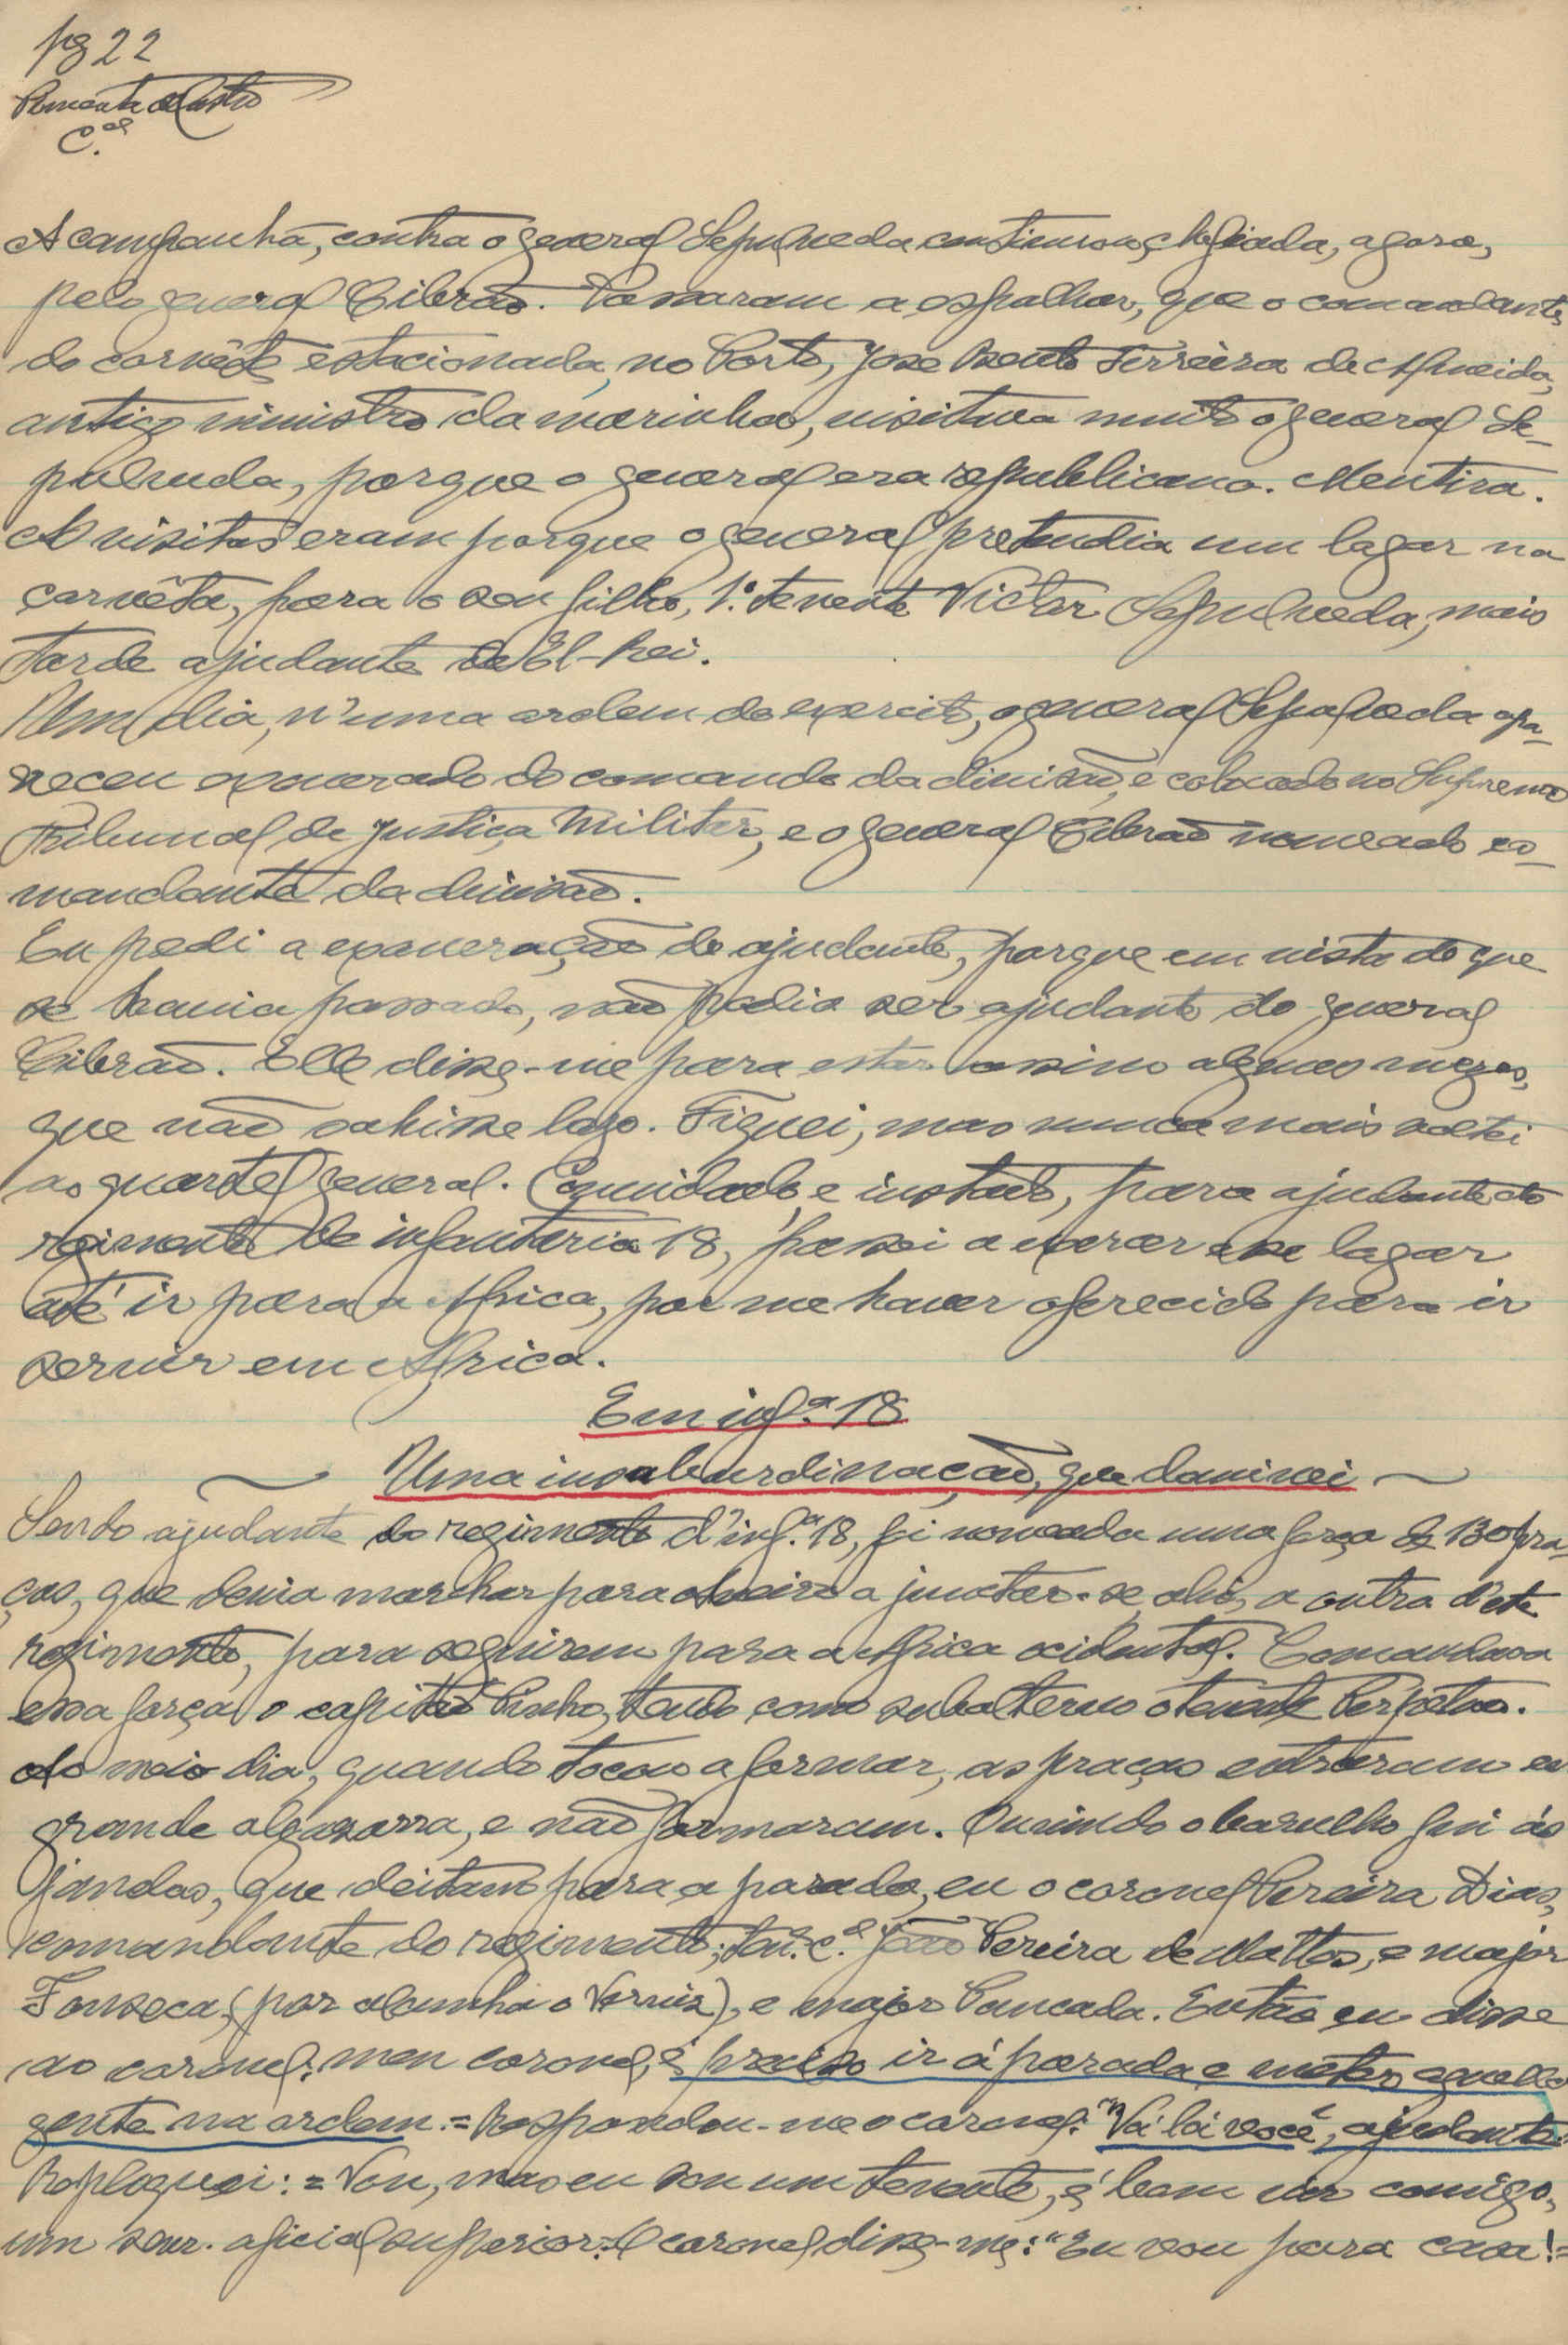 pg 22
Pimenta de Castro
C.el
A campanha, contra o general Sepulveda continuou, chefiada, agora,
pelo general Cibrão. Passaram a espalhar, que o comandante
da corvêta estacionada, no Porto, José Bento Ferreira de Almeida,
antigo ministro da marinha, visitava muito o general Se-
pulveda, porque o general era republicano. Mentira.
As visitas eram porque o general pretendia um lugar na
corvêta, para o seu filho, 1.º tenente Victor Sepulveda, mais
tarde ajudante de El-Rei.
Um dia, n'uma ordem do exercito, o general Sepulveda apa-
receu exonerado do comando da divisão, e colocado no Supremo
Tribunal de Justiça Militar, e o general Cibrão nomeado co-
mandante da divisão.
Eu pedi a exoneração de ajudante, porque em vista do que
se havia passado, não podia ser ajudante do general
Cibrão. Elle disse-me para estar assim alguns mezes,
que não sahisse logo. Fiquei, mas nunca mais voltei
ao quartel general. Convidado, e instado, para ajudante do
regimento de infantaria 18, passei a exercer esse lugar
até ir para a Africa, por me haver oferecido para ir
servir em Africa.
Em inf.ª 18
Uma insuburdinação, que dominei
Sendo ajudante do regimento d'inf.ª 18, foi nomeada uma força de 130 pra-
ças, que devia marchar para Aveiro a juntar-se, ahi, a outra d'este
regimento, para seguirem para a Africa ocidental. Comandava
essa força o capitão Pinho, tendo como subalterno o tenente Perpetuo.
Ao meio dia, quando tocou a formar, as praças entraram em
grande algazarra, e não formaram. Ouvindo o barulho fui ás
janelas, que deitam para a parada, eu o coronel Pereira Dias,
comandante do regimento; ten. c.el João Pereira de Mattos, e major
Fonseca, (por alcunha o Verniz), e major Pancada. Então eu disse
ao coronel: meu coronel, é preciso ir á parada e meter aquella
gente na ordem. = Respondeu-me o coronel: "Vá lá você, ajudante"
Repliquei: = Vou, mas eu sou um tenente, é bom vir comigo,
um snr. oficial superior. = O coronel disse-me: "Eu vou para casa! =